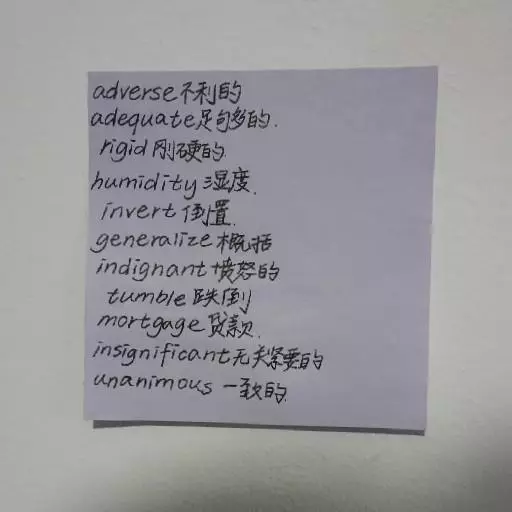 adverse 不利的
adequate 足够多的.
rigid 刚硬的.
humidity 湿度.
invert 倒置.
generalize 概括
indignant 愤怒的
tumble 跌倒
mortgage 贷款.
insignificant 无关紧要的
unanimous 一致的.